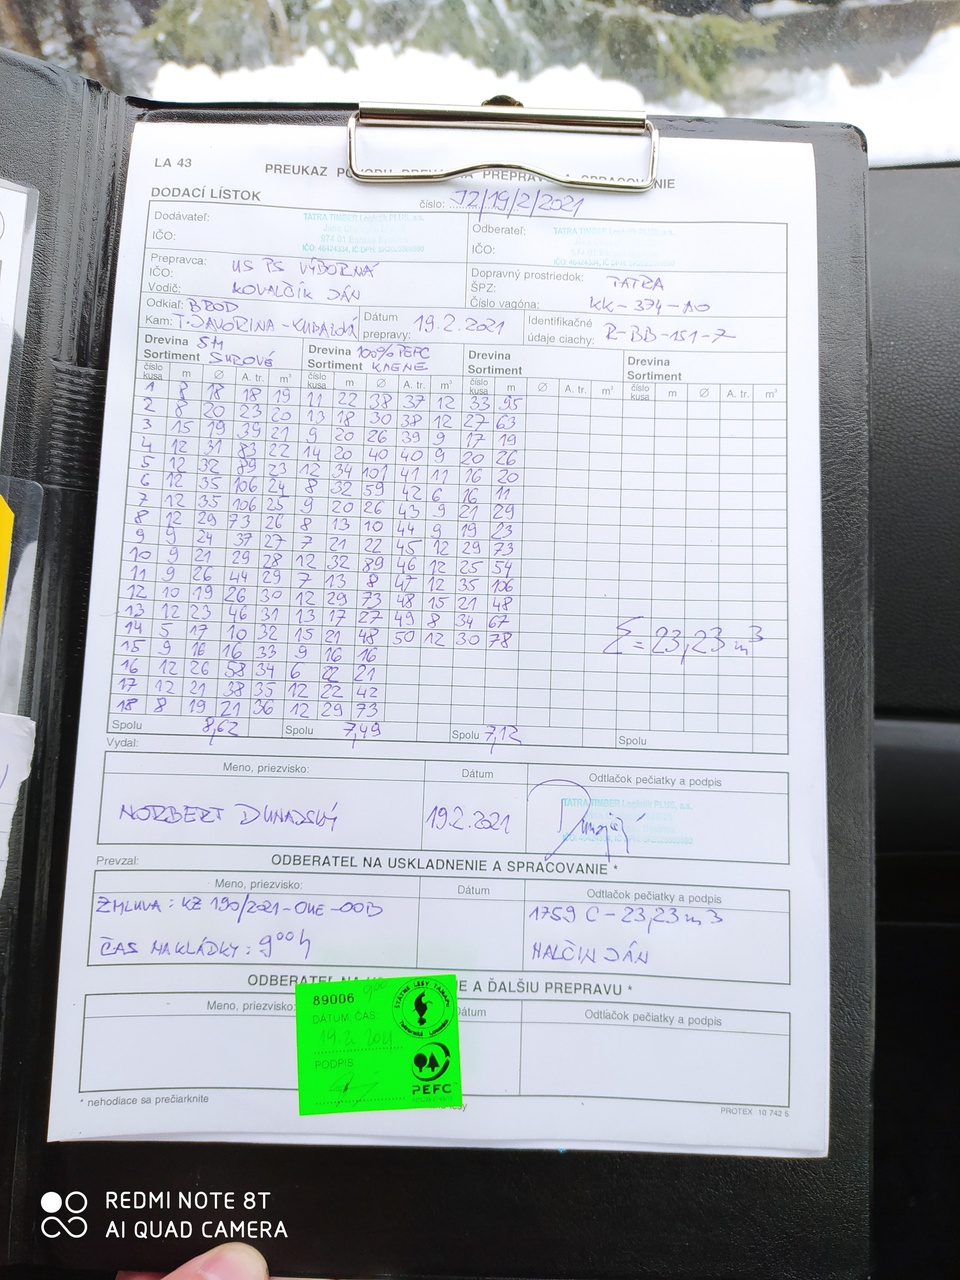 LA 43
PREUKAZ PÔVODU DREVA NA PREPRAVU A SPRACOVANIE
DODACÍ LÍSTOK
číslo: 12/19/2/2021
Dodávateľ: TATRA TIMBER Logistik PLUS, s.r.o.
IČO:
Odberateľ: TATRA TIMBER Logistik PLUS, s.r.o.
IČO:
Prepravca: US PS VÝBORNÁ
IČO:
Vodič: KOVALČÍK JÁN
Dopravný prostriedok: TATRA
ŠPZ:
Číslo vagóna: KK-374-AO
Odkiaľ: BROD
Kam: T. JAVORINA -
Dátum prepravy: 19.2.2021
Identifikačné údaje ciachy: R-BB-151-7
Drevina SM Drevina 100% PEFC Drevina Drevina
Sortiment SUROVÉ Sortiment Sortiment Sortiment
číslo kusa m ∅ A. tr. m³ číslo kusa m ∅ A. tr. m³ číslo kusa m ∅ A. tr. m³ číslo kusa m ∅ A. tr. m³
1 8 18 18 19 11 22 38 37 12 33 95
2 8 20 23 20 13 18 30 38 12 27 63
3 15 19 39 21 9 20 26 39 9 17 19
4 12 31 83 22 14 20 40 40 9 20 26
5 12 32 89 23 12 34 101 41 11 16 20
6 12 35 106 24 8 32 59 42 6 16 11
7 12 35 106 25 9 20 26 43 9 21 29
8 12 29 73 26 8 13 10 44 9 19 23
9 9 24 37 27 7 21 22 45 12 29 73
10 9 21 29 28 12 32 89 46 12 25 54
11 9 26 44 29 7 13 8 47 12 35 106
12 10 19 26 30 12 29 73 48 15 21 48
13 12 23 46 31 13 17 27 49 8 34 67
14 5 17 10 32 15 21 48 50 12 30 78
Σ = 23,23 m3
15 9 16 16 33 9 16 16
16 12 26 58 34 6 22 21
17 12 21 38 35 12 22 42
18 8 19 21 36 12 29 73
Spolu 8,62 Spolu 7,49 Spolu 7,12 Spolu
Vydal:
Meno, priezvisko: Dátum Odtlačok pečiatky a podpis
NORBERT DUNAJSKÝ 19.2.2021 TATRA TIMBER Logistik PLUS, s.r.o.
Prevzal: ODBERATEĽ NA USKLADNENIE A SPRACOVANIE *
Meno, priezvisko: Dátum Odtlačok pečiatky a podpis
ZMLUVA: KZ 190/2021-OHE-OOD 1759 C - 23,23 m3
ČAS NAKLÁDKY: 9⁰⁰ h HALČIN JÁN
ODBERATEĽ NA E A ĎALŠIU PREPRAVU *
Meno, priezvisko: Dátum Odtlačok pečiatky a podpis
89006 9⁰⁰
ŠTÁTNE LESY TANAPU
DÁTUM, ČAS
19.2.2021
PODPIS
PEFC
* nehodiace sa prečiarknite
PROTEX 10 742 5
REDMI NOTE 8T
AI QUAD CAMERA